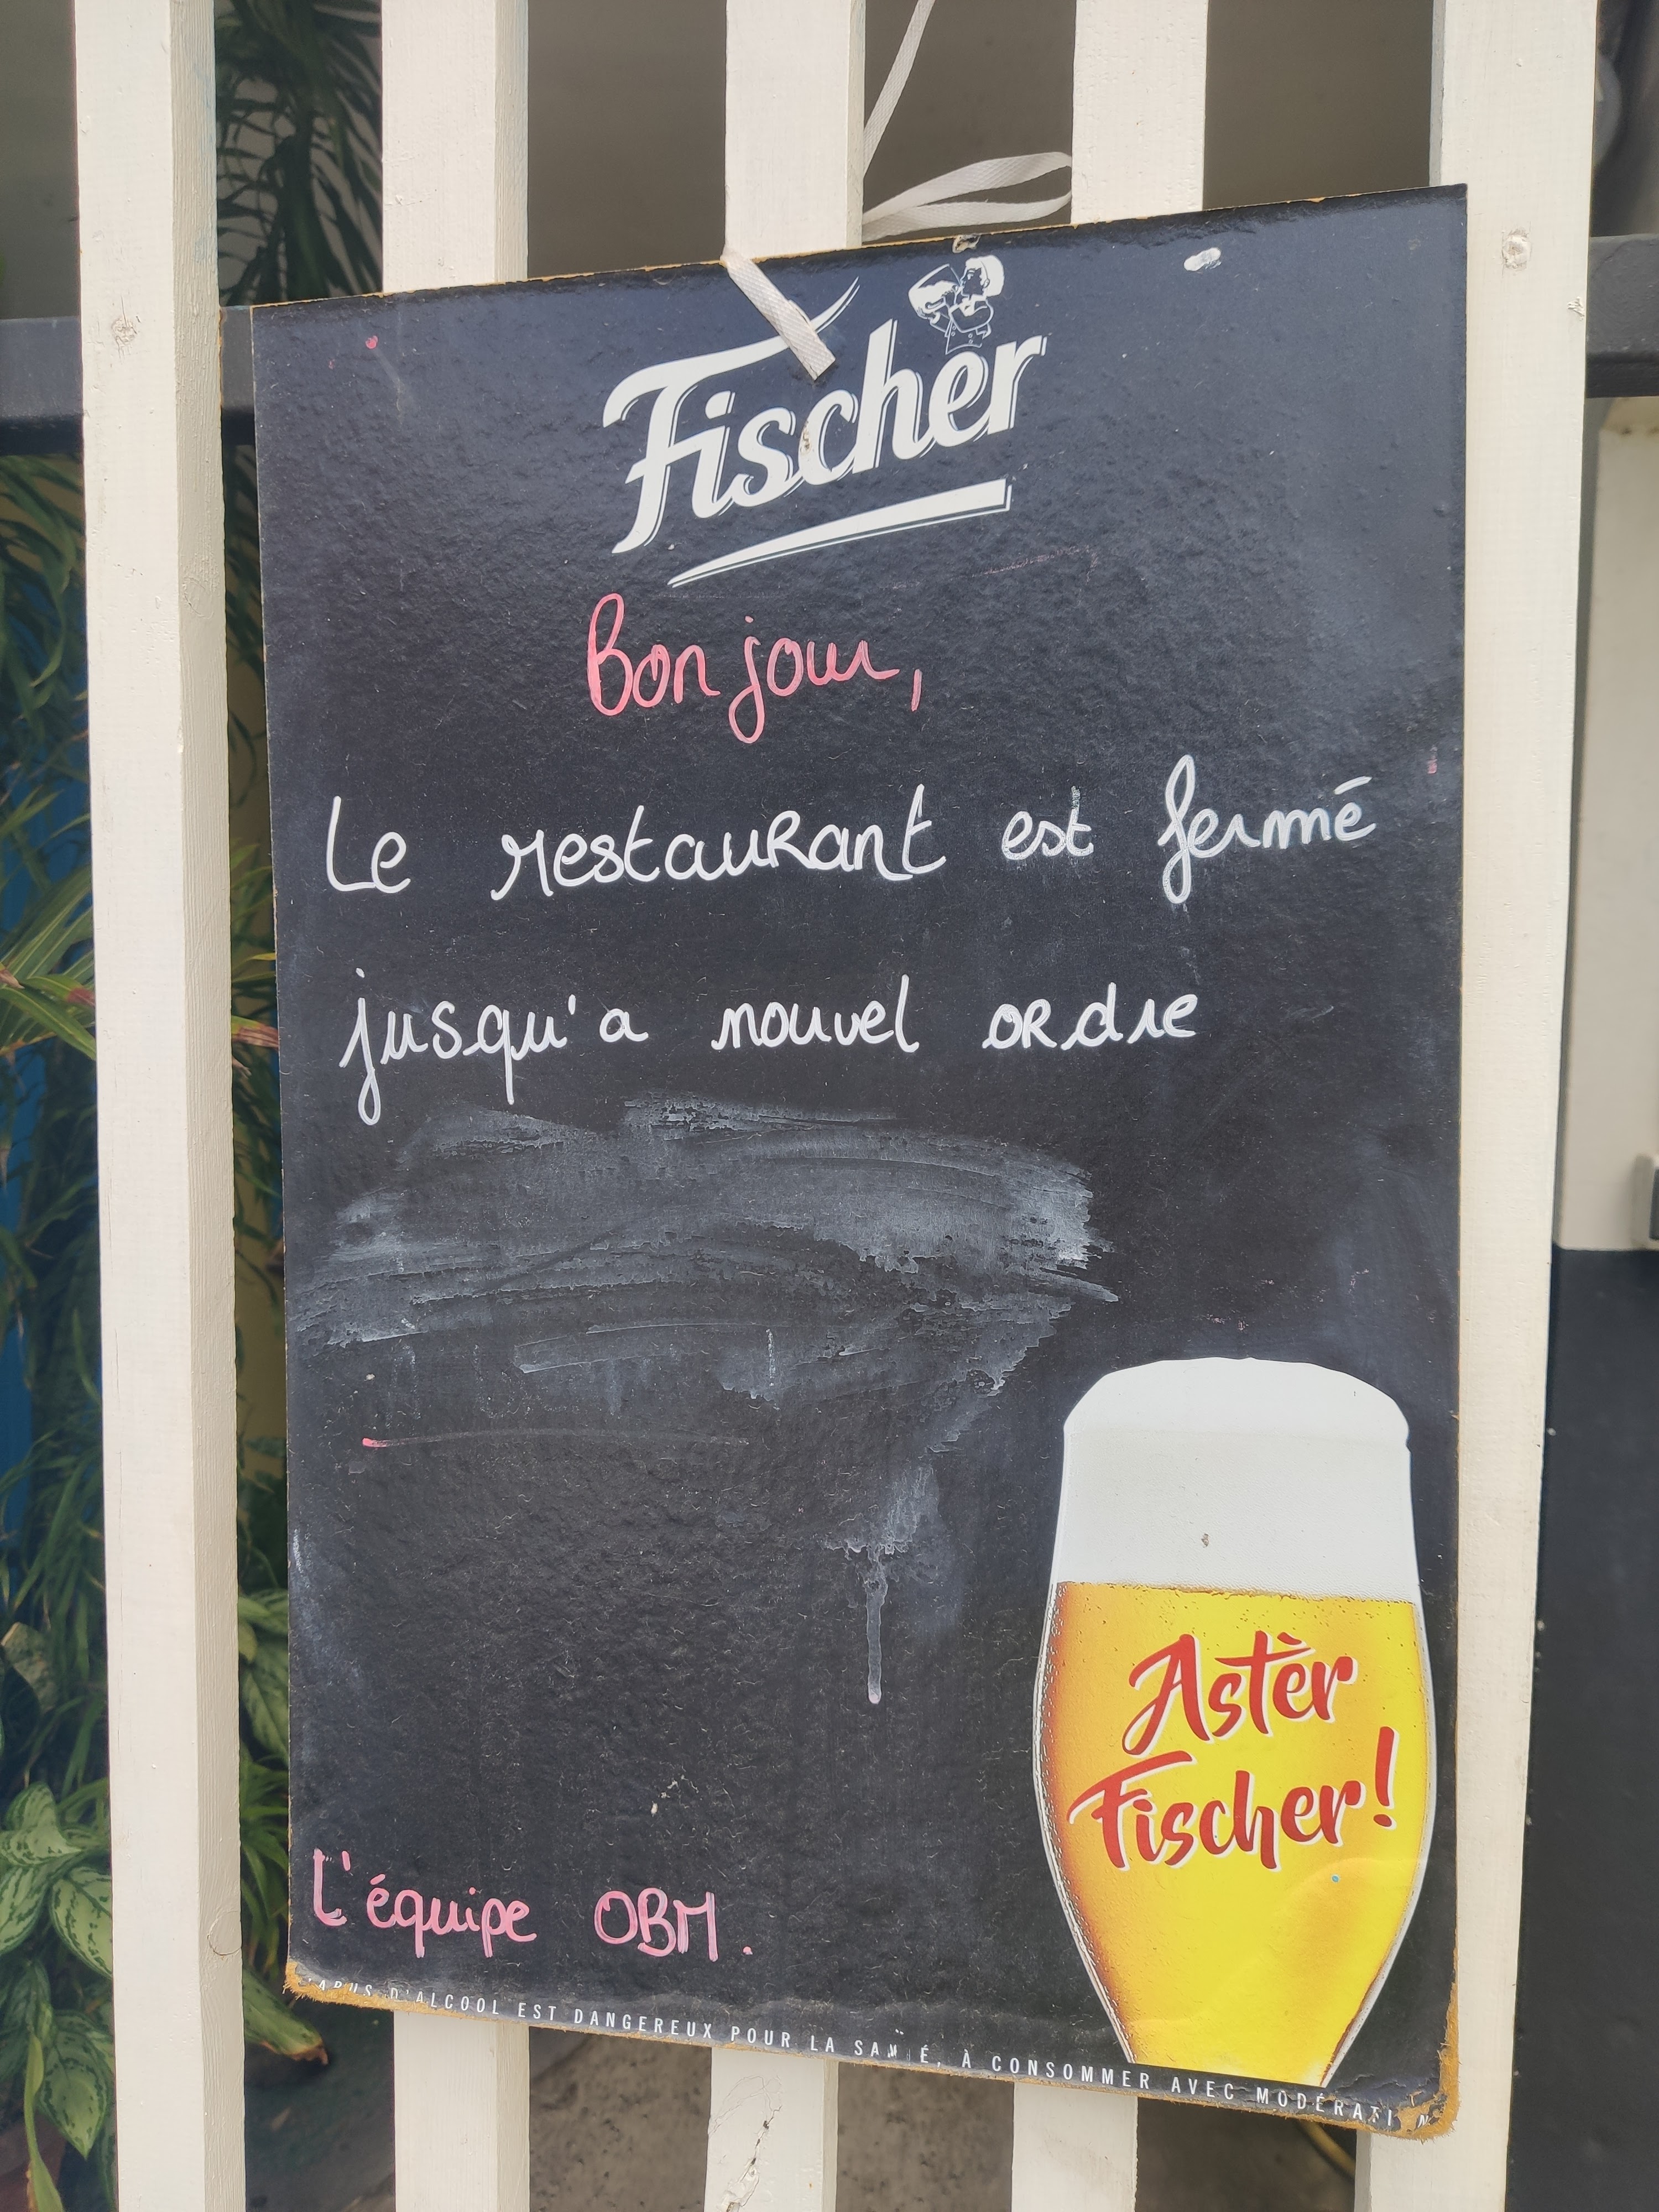 Fischer
Bonjour,
Le restaurant est fermé
jusqu'a nouvel ordre
Astèr
Fischer!
L'équipe OBM.
L'ABUS D'ALCOOL EST DANGEREUX POUR LA SANTÉ, À CONSOMMER AVEC MODÉRATION